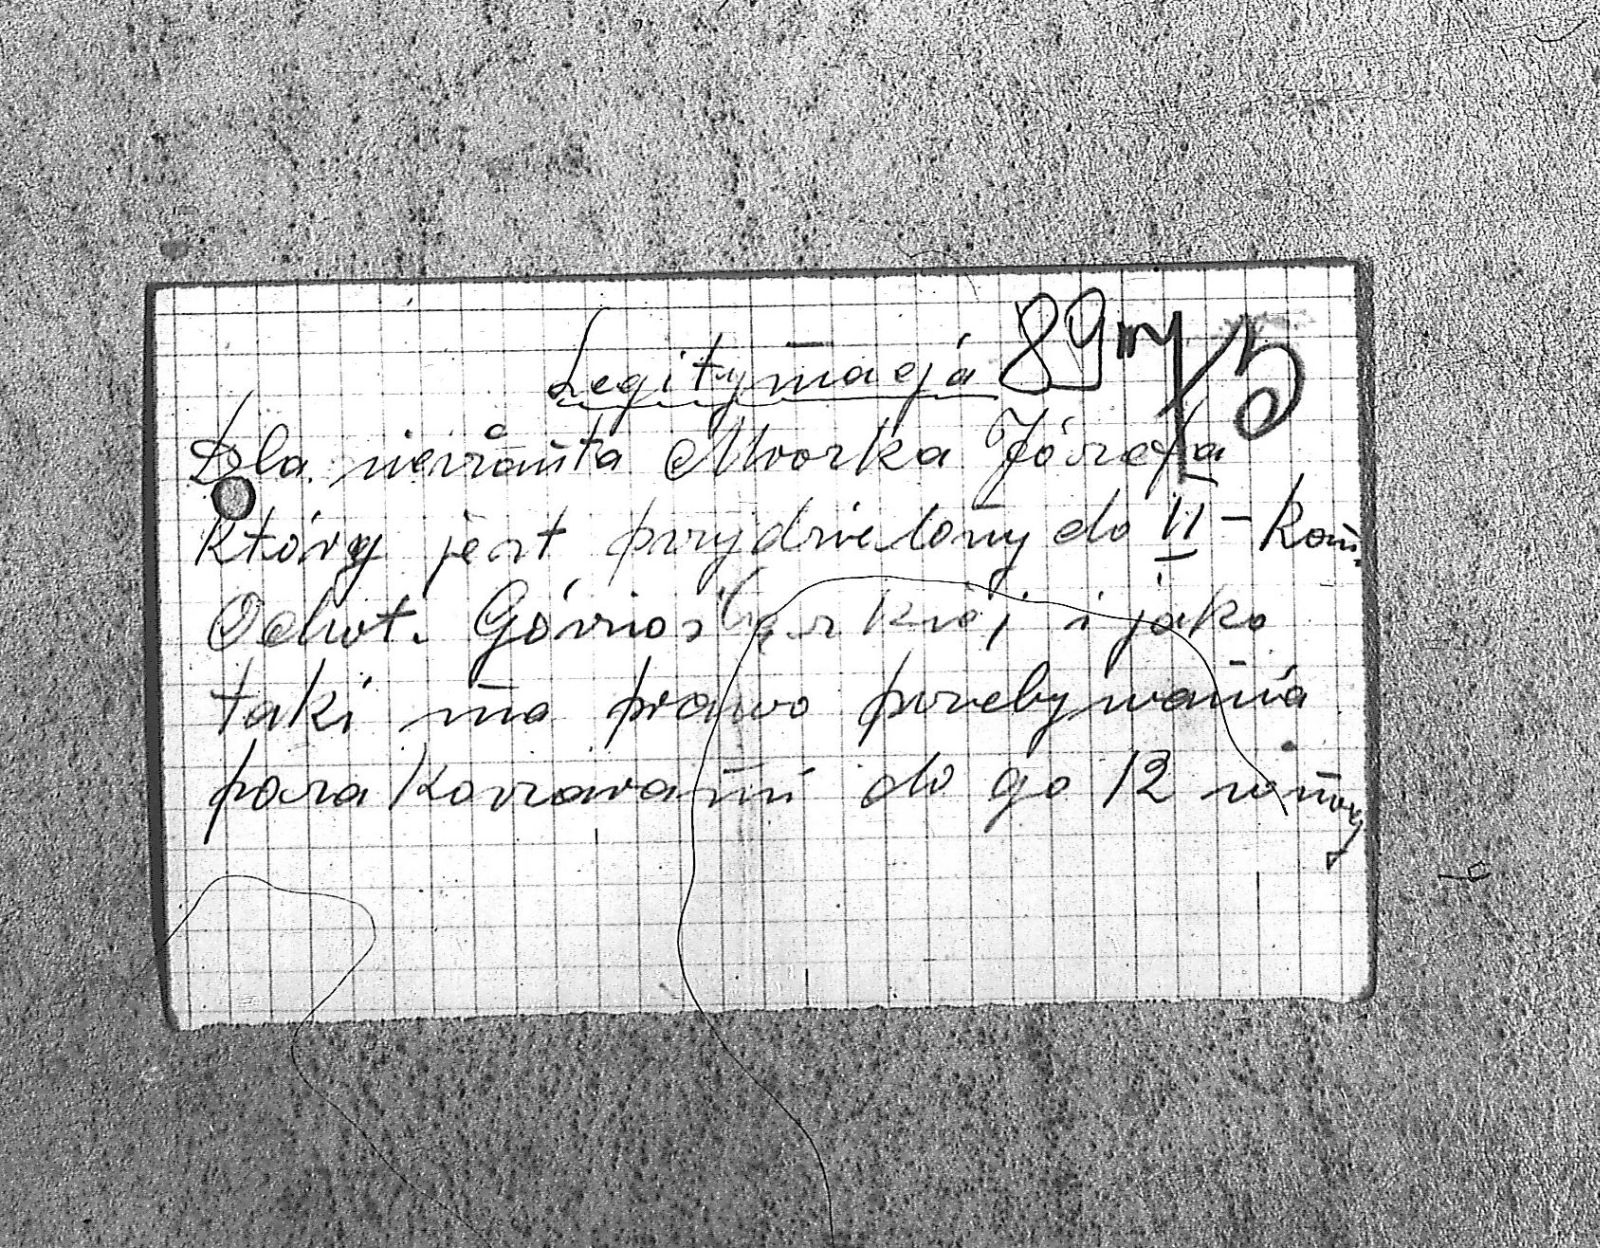 Legitymacja 89
Dla sierżanta Mvorka Józefa
Który jest przydzielony do II - Kom.
Ochot. Górnoślązkiej i jako
taki ma prawo przebywania
poza Koszarami do go 12 w nocy